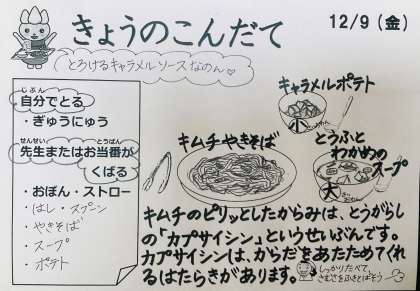 きょうのこんだて
12/9(金)
とろけるキャラメルソースなのん♡
自分でとる
じぶん
・ぎゅうにゅう
先生またはお当番が
せんせい
とうばん
くばる
・おぼん・ストロー
・はし・スプーン
・やきそば
・スープ
・ポテト
キャラメルポテト
小
キムチやきそば
とうふと
わかめの
スープ
大
キムチのピリッとしたからみは、とうがらし
の「カプサイシン」というせいぶんです。
カプサイシンは、からだをあたためてくれ
るはたらきがあります。
しっかりたべて、
さむさをふきとばそう